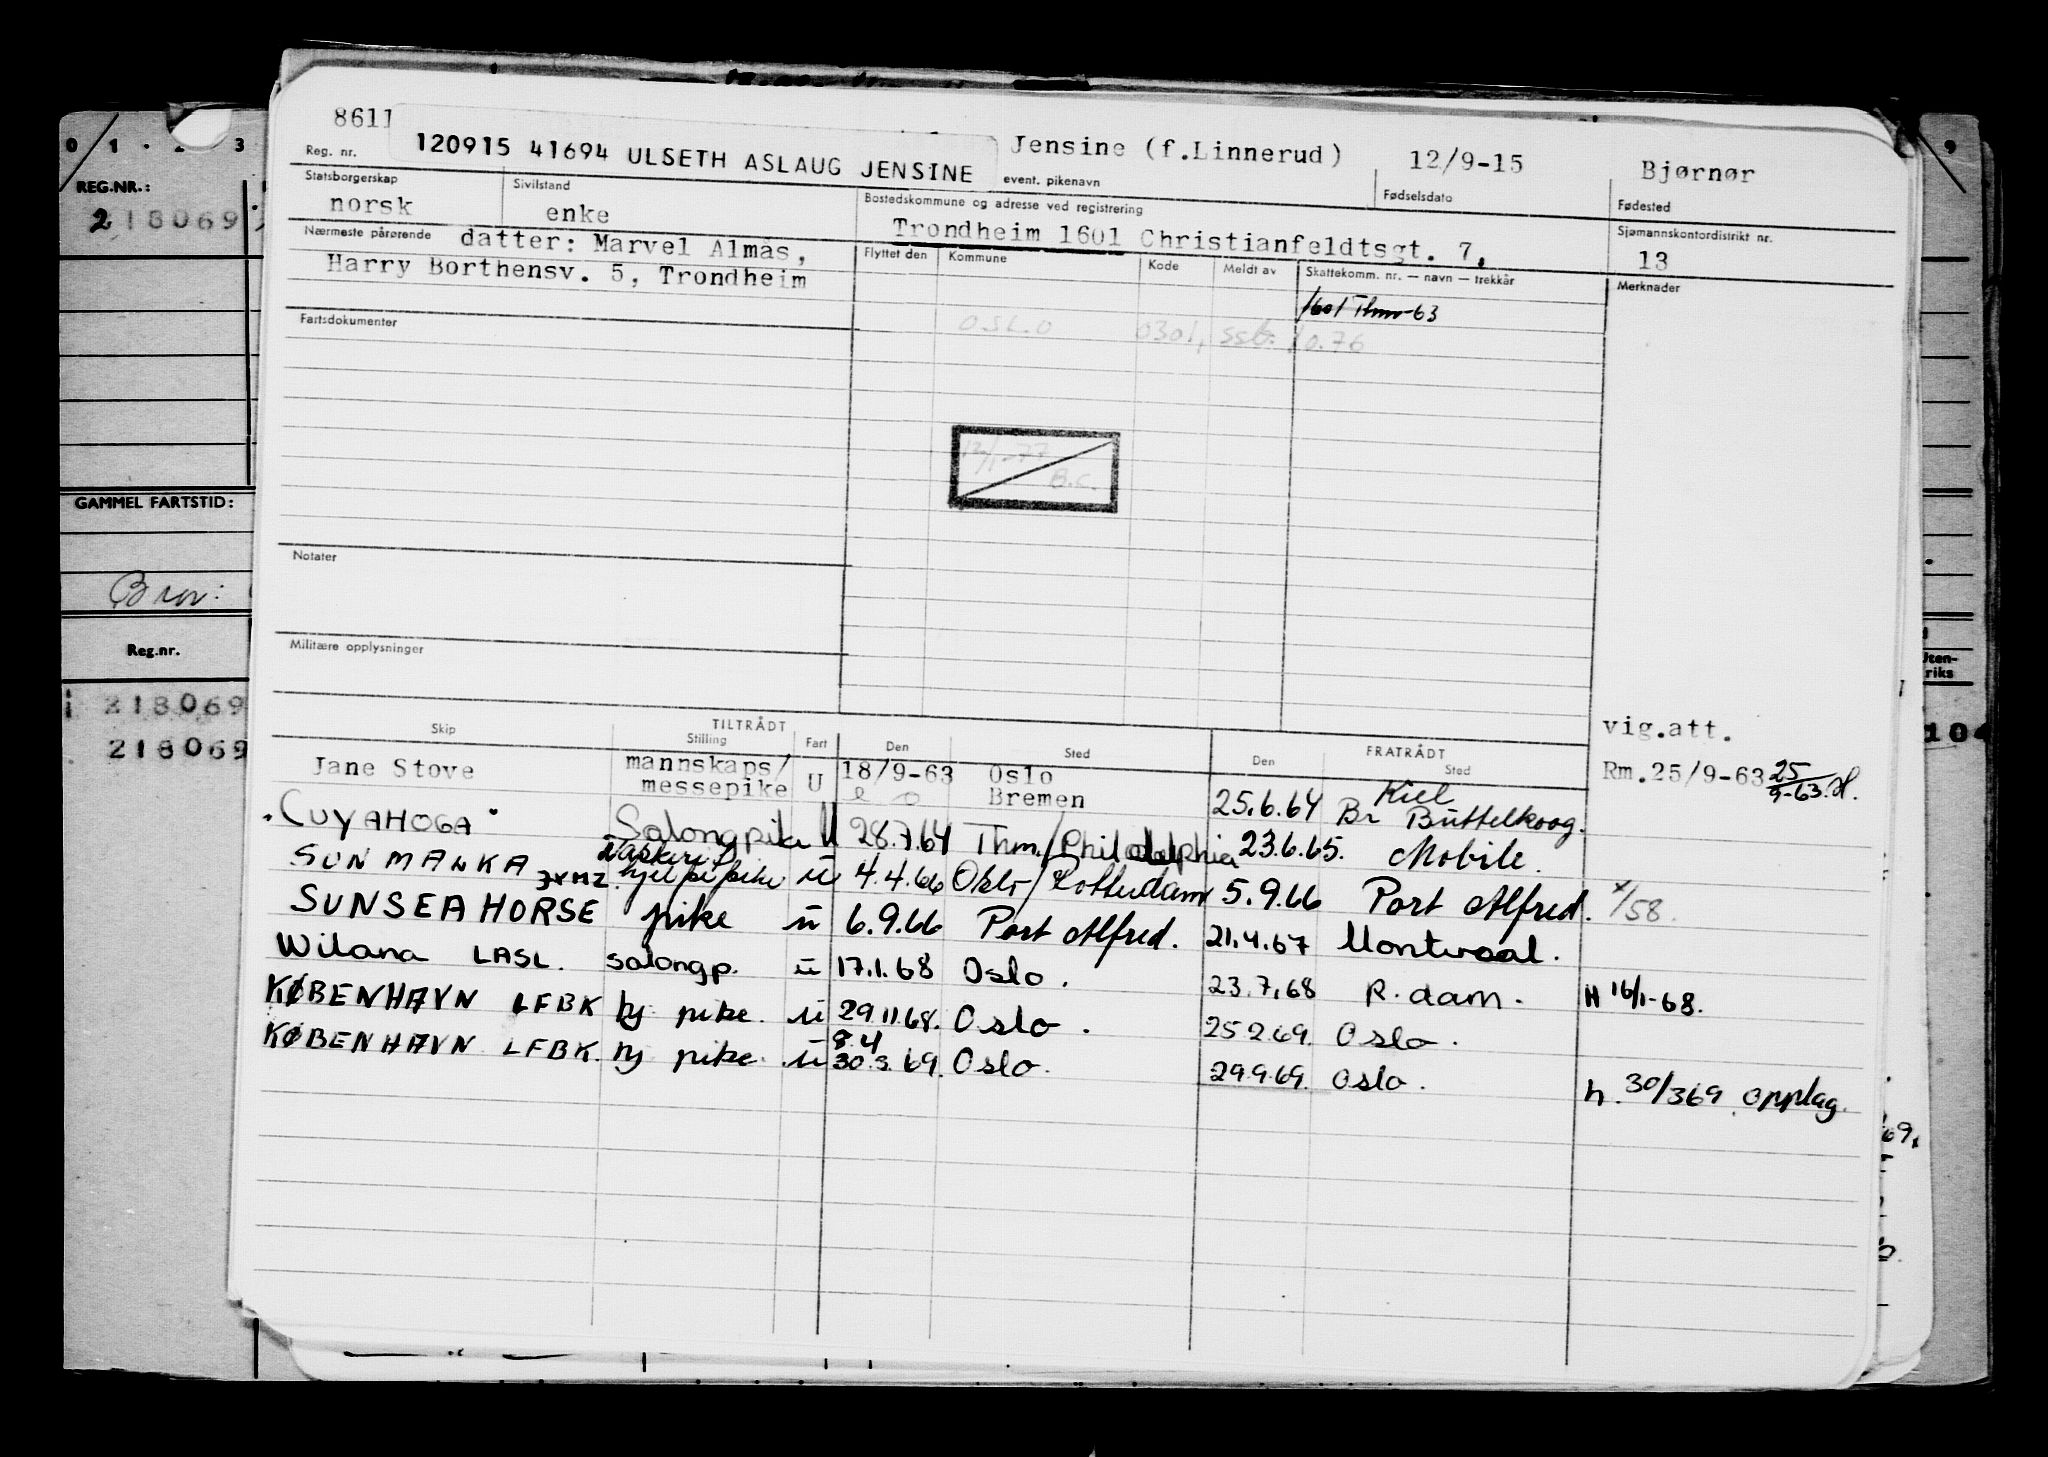 8611
120915 41694 ULSETH ASLAUG JENSINE
Jensine (f.Linnerud)
12/9-15
Bjørnør
Reg. nr.
event. pikenavn
Fødselsdato
Fødested
Statsborgerskap
norsk
Sivilstand
enke
Bostedskommune og adresse ved registrering
Trondheim 1601 Christianfeldtsgt. 7,
Sjømannskontordistrikt nr.
13
Nærmeste pårørende datter: Marvel Almås,
Harry Borthensv. 5, Trondheim
Flyttet den Kommune Kode Meldt av Skattekomm. nr. — navn — trekkår Merknader
1601 Thm-63
OSLO 0301, ssb. 10.76
Fartsdokumenter
12/1-77
B.C.
Notater
Militære opplysninger
vig.att.
TILTRÅDT FRATRÅDT
Skip Stilling Fart Den Sted Den Sted
Jane Stove mannskaps/ messepike U 18/9-63 Oslo Bremen 25.6.64 Kiel Br Büttelkoog. Rm.25/9-63 25/9-63.
"CUYAHOGA" Salongpike U 28.7.64 Thm./Philadelphia 23.6.65. Mobile.
SUN MANKA JXMZ hjelpepike ü 4.4.66 Oslo/Rotterdam 5.9.66 Port Alfred. x/58.
SUNSEAHORSE pike ü 6.9.66 Port Alfred. 21.4.67 Montreal.
Wilana LASL. salongp. ü 17.1.68 Oslo. 23.7.68 R.dam. H 16/1-68.
KØBENHAVN LFBK hj pike. ü 29.11.68. Oslo. 25.2.69. Oslo.
8.4
KØBENHAVN LFBK. hj pike. ü 30.3.69. Oslo. 29.9.69. Oslo. h. 30/369 opplag.
0 1 2 3
REG.NR.:
218069
GAMMEL FARTSTID:
Reg.nr.
218069
218069
9
Uten-
riks
104
69.